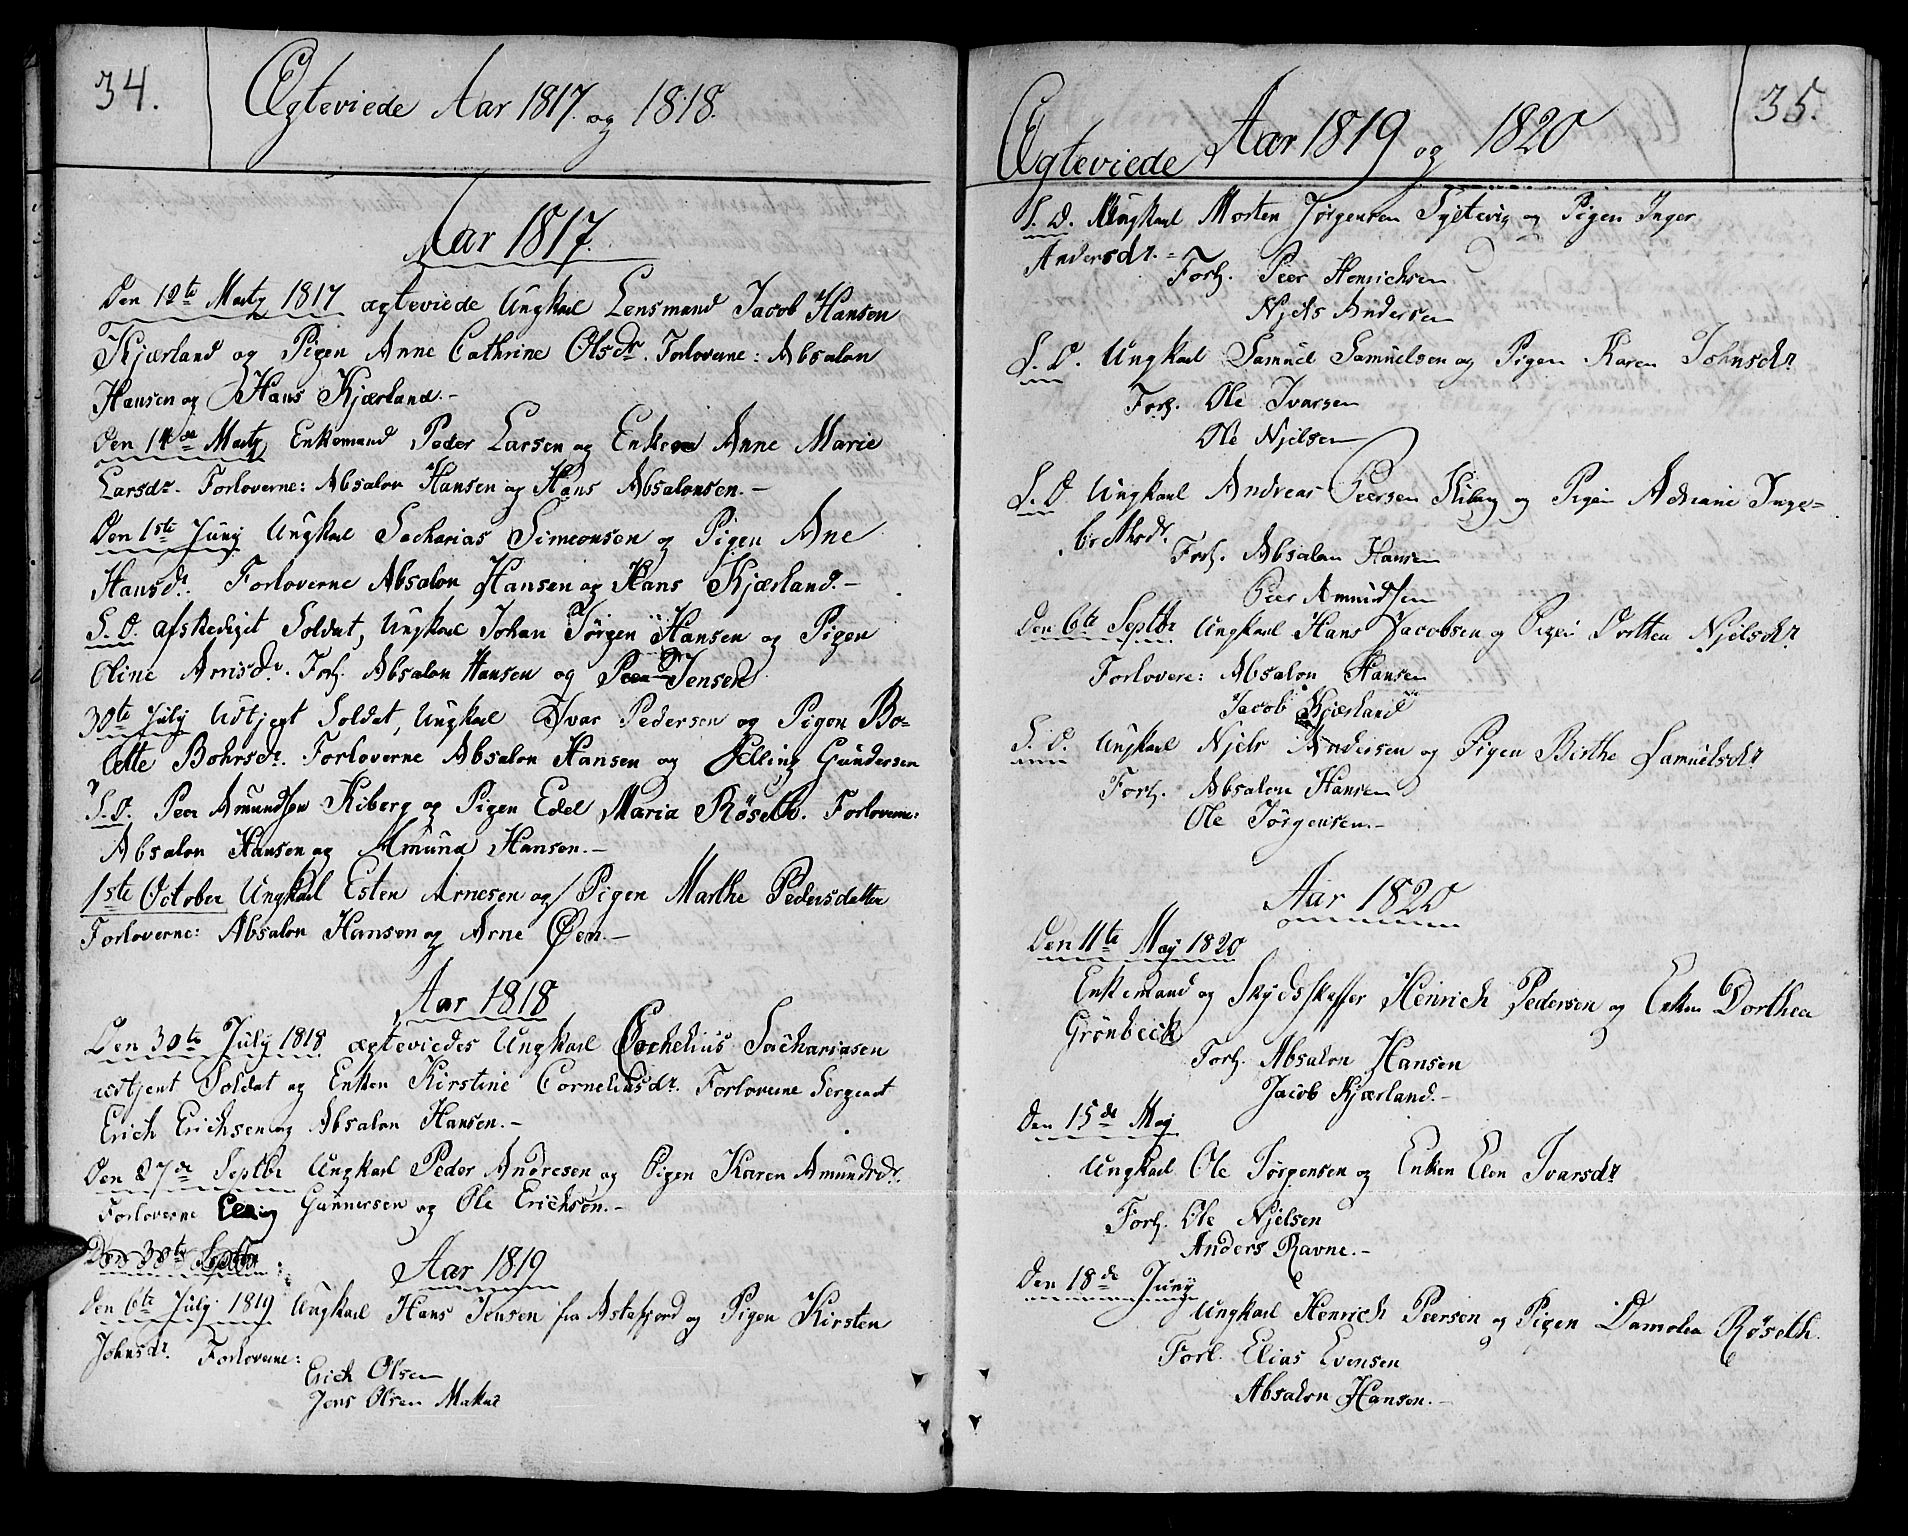 34.
Ægteviede Aar 1817 og 1818.
Aar 1817.
Den 12te Martz 1817 ægteviede Ungkarl Lensmand Jacob Hansen
Kjærland og Pigen Anne Cathrine Olsdr. Forloverne: Absalon
Hansen og Hans Kjærland.-
Den 14de Martz Enkemand Peder Larsen og Enken Anne Marie
Larsdr. Forloverne: Absalon Hansen og Hans Absalonsen.-
Den 1ste Juny Ungkarl Sacharias Simeonsen og Pigen Ane
Hansdr. Forloverne Absalon Hansen og Hans Kjærland.-
S. D. afskediget Soldat, Ungkarl Johan Jörgen Hansen og Pigen
Oline Arnsdr. Forl. Absalon Hansen og Peer Jensen
30te July Udtjent Soldat, Ungkarl Ivar Pedersen og Pigen Bo-
lette Bohrsdr. Forloverne Absalon Hansen og Elling Gundersen
S. D. Peer Amundsen Kiberg og Pigen Edel Maria Röseth. Forloverne:
Absalon Hansen og Amund Hansen.-
1ste October Ungkarl Esten Arnesen og Pigen Marthe Pedersdatter
Forloverne: Absalon Hansen og Arne Öen.-
Aar 1818
Den 30te July 1818 ægteviedes Ungkarl Cornelius Sachariasen
udtjent Soldat og Enken Kirstine Corneliusdr. Forloverne Sergeant
Erich Erichsen og Absalon Hansen.-
Den 27de Septbr Ungkarl Peder Andresen og Pigen Karen Amundsdr.
Forloverne Gunnersen og Ole Erichsen.-
Den 30te Septbr
Aar 1819
Den 6te July 1819 Ungkarl Hans Jensen fra Astafjord og Pigen Kirsten
Johnsdr. Forloverne:
Erich Olsen
Jens Olsen Makul
35.
Ægteviede Aar 1819 og 1820
S. D. Ungkarl Morten Jörgensen Syltevig og Pigen Inger
Andersdr.-
Forl. Peer Henrichsen
Njels Andersen
S. D. Ungkarl Samuel Samuelsen og Pigen Karen Johnsdr
Forl. Ole Ivarsen
Ole Njelsen
S. D Ungkarl Andreas Peersen Kiberg og Pigen Adriane Inge-
brethsdr.
Forl. Absalon Hansen
Peer Amundsen
Den 6te Septbr Ungkarl Hans Jacobsen og Pigen Dorthea Njelsdr
Forlovere: Absalon Hansen
Jacob Kjærland
S. D. Ungkarl Njels Andersen og Pigen Birthe Samuelsdr
Forl. Absalon Hansen
Ole Jörgensen.-
Aar 1820
Den 11te May 1820
Enkemand og Skydsskaffer Henrich Pedersen og Enken Dorthea
Grönbeck
Forl. Absalon Hansen
Jacob Kjærland.-
Den 15de May
Ungkarl Ole Jörgensen og Enken Elen Ivarsdr
Forl. Ole Njelsen
Anders Ravne.-
Den 18de Juny
Ungkarl Henrich Peersen og Pigen Damolea Röseth.
Forl. Elias Evensen
Absalon Hansen.-